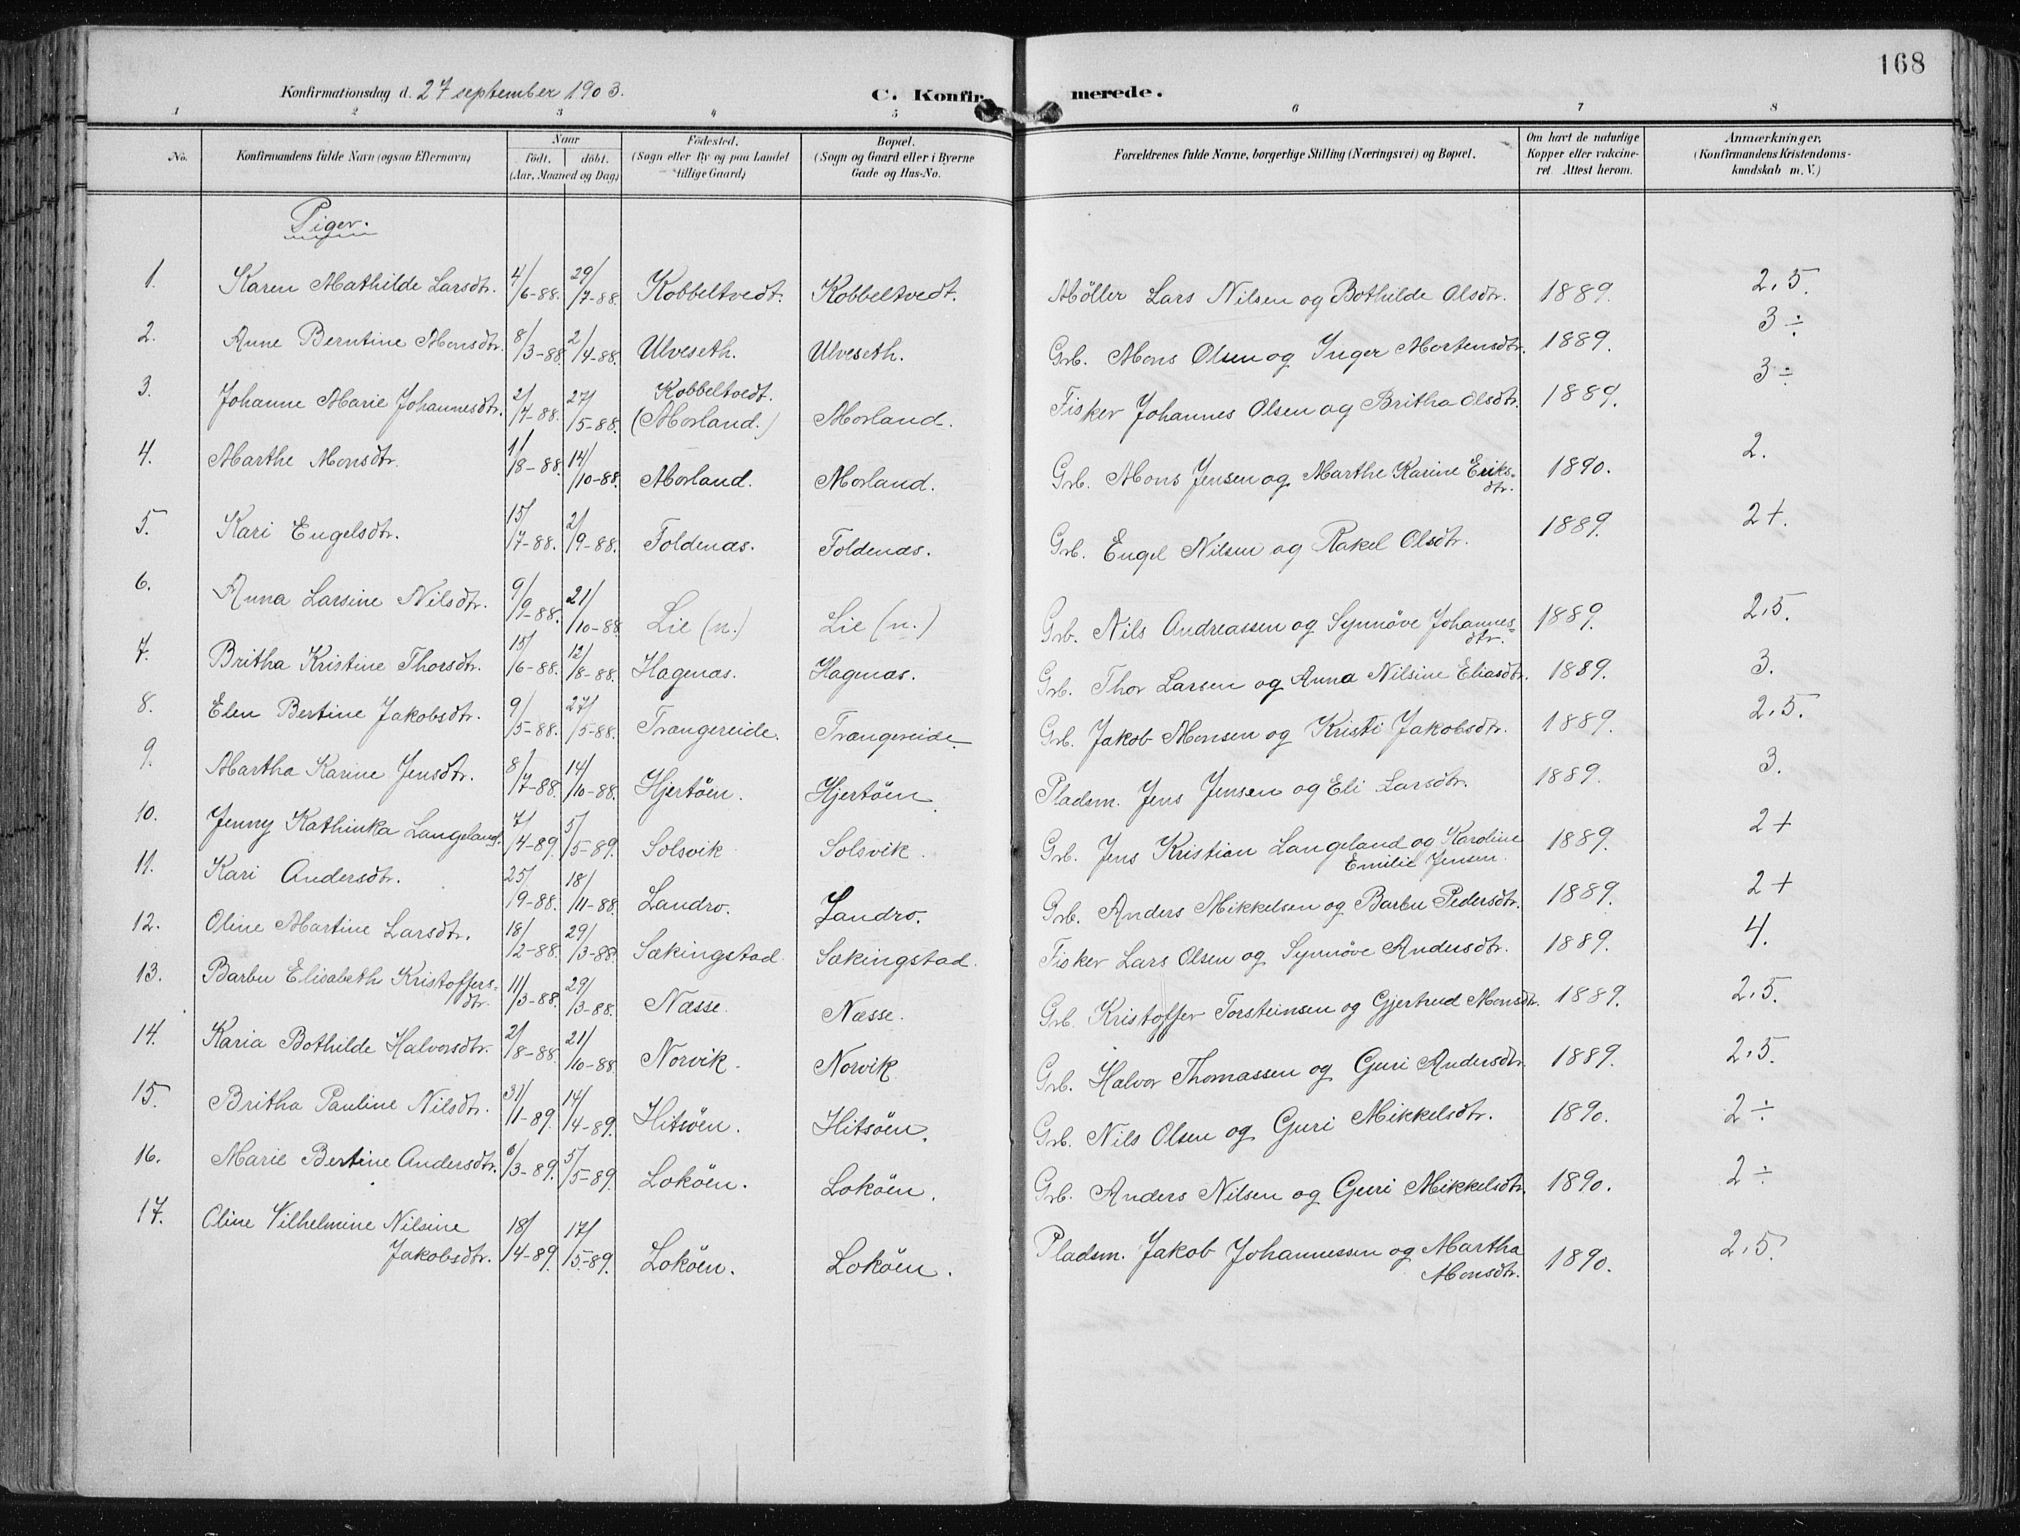 168
Konfirmationsdag d. 27 september 1903.
C. Konfirmerede.
1 2 3 4 5 6 7 8
No. Konfirmandens fulde Navn (ogsaa Efternavn) Naar født. døbt. (Aar, Maaned og Dag) Fødested. (Sogn eller By og paa Landet tillige Gaard) Bopæl. (Sogn og Gaard eller i Byerne Gade og Hus-No. Forældrenes fulde Navne, borgerlige Stilling (Næringsvei) og Bopæl. Om havt de naturlige Kopper eller vakcineret. Attest herom. Anmærkninger. (Konfirmandens Kristendomskundskab m. V.)
Piger.
1. Karen Mathilde Larsdtr. 4/6-88. 29/7-88. Kobbeltvedt. Kobbeltvedt. Møller Lars Nilsen og Bothilde Olsdtr. 1889. 2,5.
2. Anne Berntine Monsdtr. 8/3-88. 2/4-88. Ulveseth. Ulveseth. Grb. Mons Olsen og Inger Mortensdtr. 1889. 3÷
3. Johanne Marie Johannesdtr. 2/4-88. 27/5-88. Kobbeltvedt. (Morland.) Morland. Fisker Johannes Olsen og Britha Olsdtr. 1889. 3÷
4. Marthe Monsdtr. 1/8-88. 14/10-88. Morland. Morland. Grb. Mons Jensen og Marthe Karine Eriks=dtr. 1890. 2.
5. Kari Engelsdtr. 15/7-88. 2/9-88. Foldenæs. Foldenæs. Grb. Engel Nilsen og Rakel Olsdtr. 1889. 2+.
6. Anna Larsine Nilsdtr. 9/9-88. 21/10-88 Lie (n.) Lie (n.) Grb. Nils Andreassen og Synnøve Johannes=dtr. 1889. 2,5.
7. Britha Kristine Thorsdtr. 15/6-88. 12/8-88. Hagenæs. Hagenæs. Grb. Thor Larsen og Anna Nilsine Eliasdtr. 1889. 3.
8. Elen Bertine Jakobsdtr. 9/5-88. 27/5-88. Trangereide. Trangereide. Grb. Jakob Monsen og Kristi Jakobsdtr. 1889. 2,5.
9. Martha Karine Jensdtr. 8/7-88. 14/10-88. Hjertøen. Hjertøen. Pladsm. Jens Jensen og Eli Larsdtr. 1889. 3.
10. Jenny Kathinka Langeland. 7/4-89. 5/5-89. Solsvik Solsvik. Grb. Jens Kristian Langeland og Karoline Emilie Jensen. 1889. 2+
11. Kari Andersdtr. 25/9-88. 18/11-88 Landro. Landro. Grb. Anders Mikkelsen og Barbu Pedersdtr. 1889. 2+
12. Oline Martine Larsdtr. 18/2-88. 29/3-88. Sækingstad Sækingstad. Fisker Lars Olsen og Synnøve Andersdtr. 1889. 4.
13. Barbu Elisabeth Kristoffers=dtr. 11/3-88. 29/3-88. Næsse. Næsse. Grb. Kristoffer Torsteinsen og Gjertrud Monsdtr. 1889. 2,5.
14. Karia Bothilde Halvorsdtr. 2/8-88. 21/10-88 Norvik. Norvik Grb. Halvor Thomassen og Guri Andersdtr. 1889. 2,5.
15. Britha Pauline Nilsdtr. 31/1-89. 14/4-89. Hitsøen. Hitsøen. Grb. Nils Olsen og Guri Mikkelsdtr. 1890. 2÷
16. Marie Bertine Andersdtr. 6/3-89. 5/5-89. Lokøen. Lokøen. Grb. Anders Nilsen og Guri Mikkelsdtr. 1890. 2÷
17. Oline Vilhelmine Nilsine Jakobsdtr. 18/4-89. 17/5-89. Lokøen. Lokøen. Pladsm. Jakob Johannessen og Martha Monsdtr. 1890. 2,5.